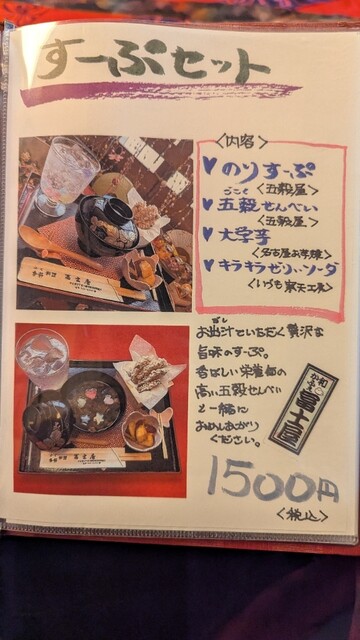 すーぷセット
〈内容〉
♥のりすーぷ
〈五穀屋〉
ごこく
♥五穀せんべい
〈五穀屋〉
♥大学芋
♥キラキラゼリーソーダ
お出汁でいただく贅沢な
だし
旨味のすーぷ。
香ばしい栄養価の
高い五穀せんべい
と一緒に
おめしあがり
ください。
和
かふぇ
富士屋
1500円
〈税込〉